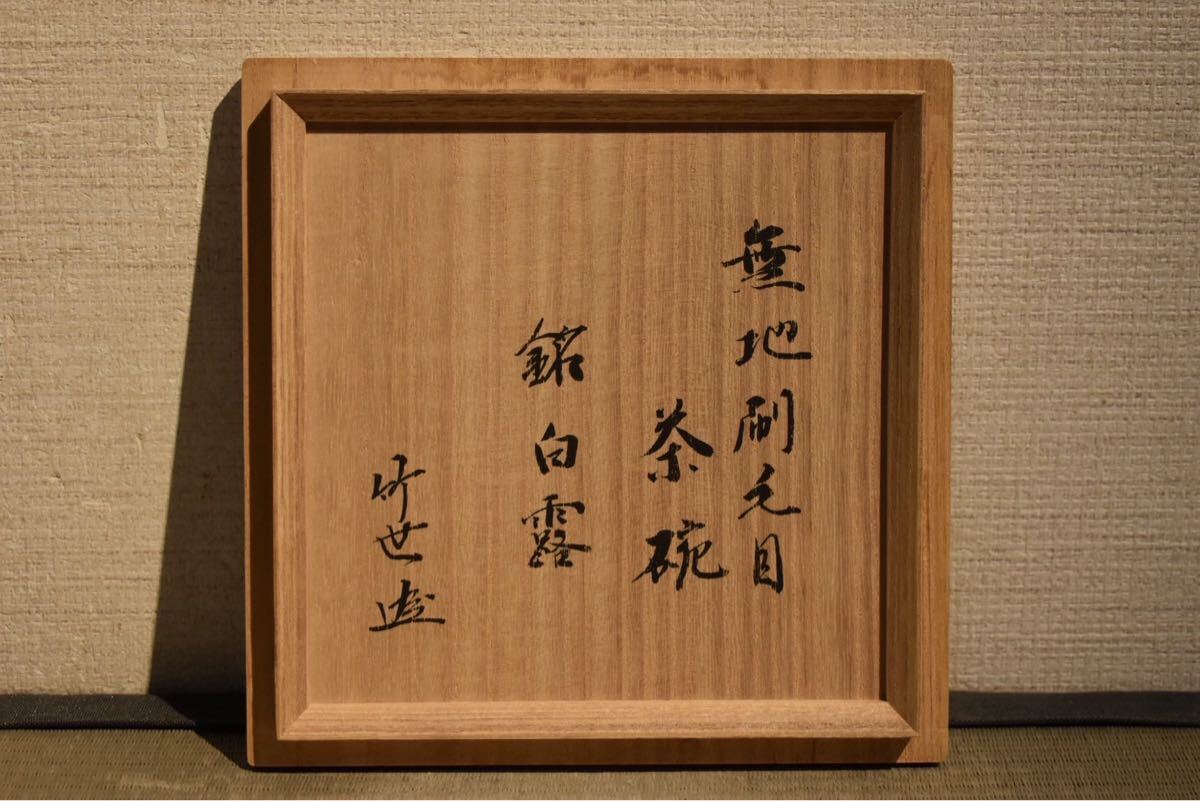 無地刷毛目
茶碗
銘 白露
竹世造